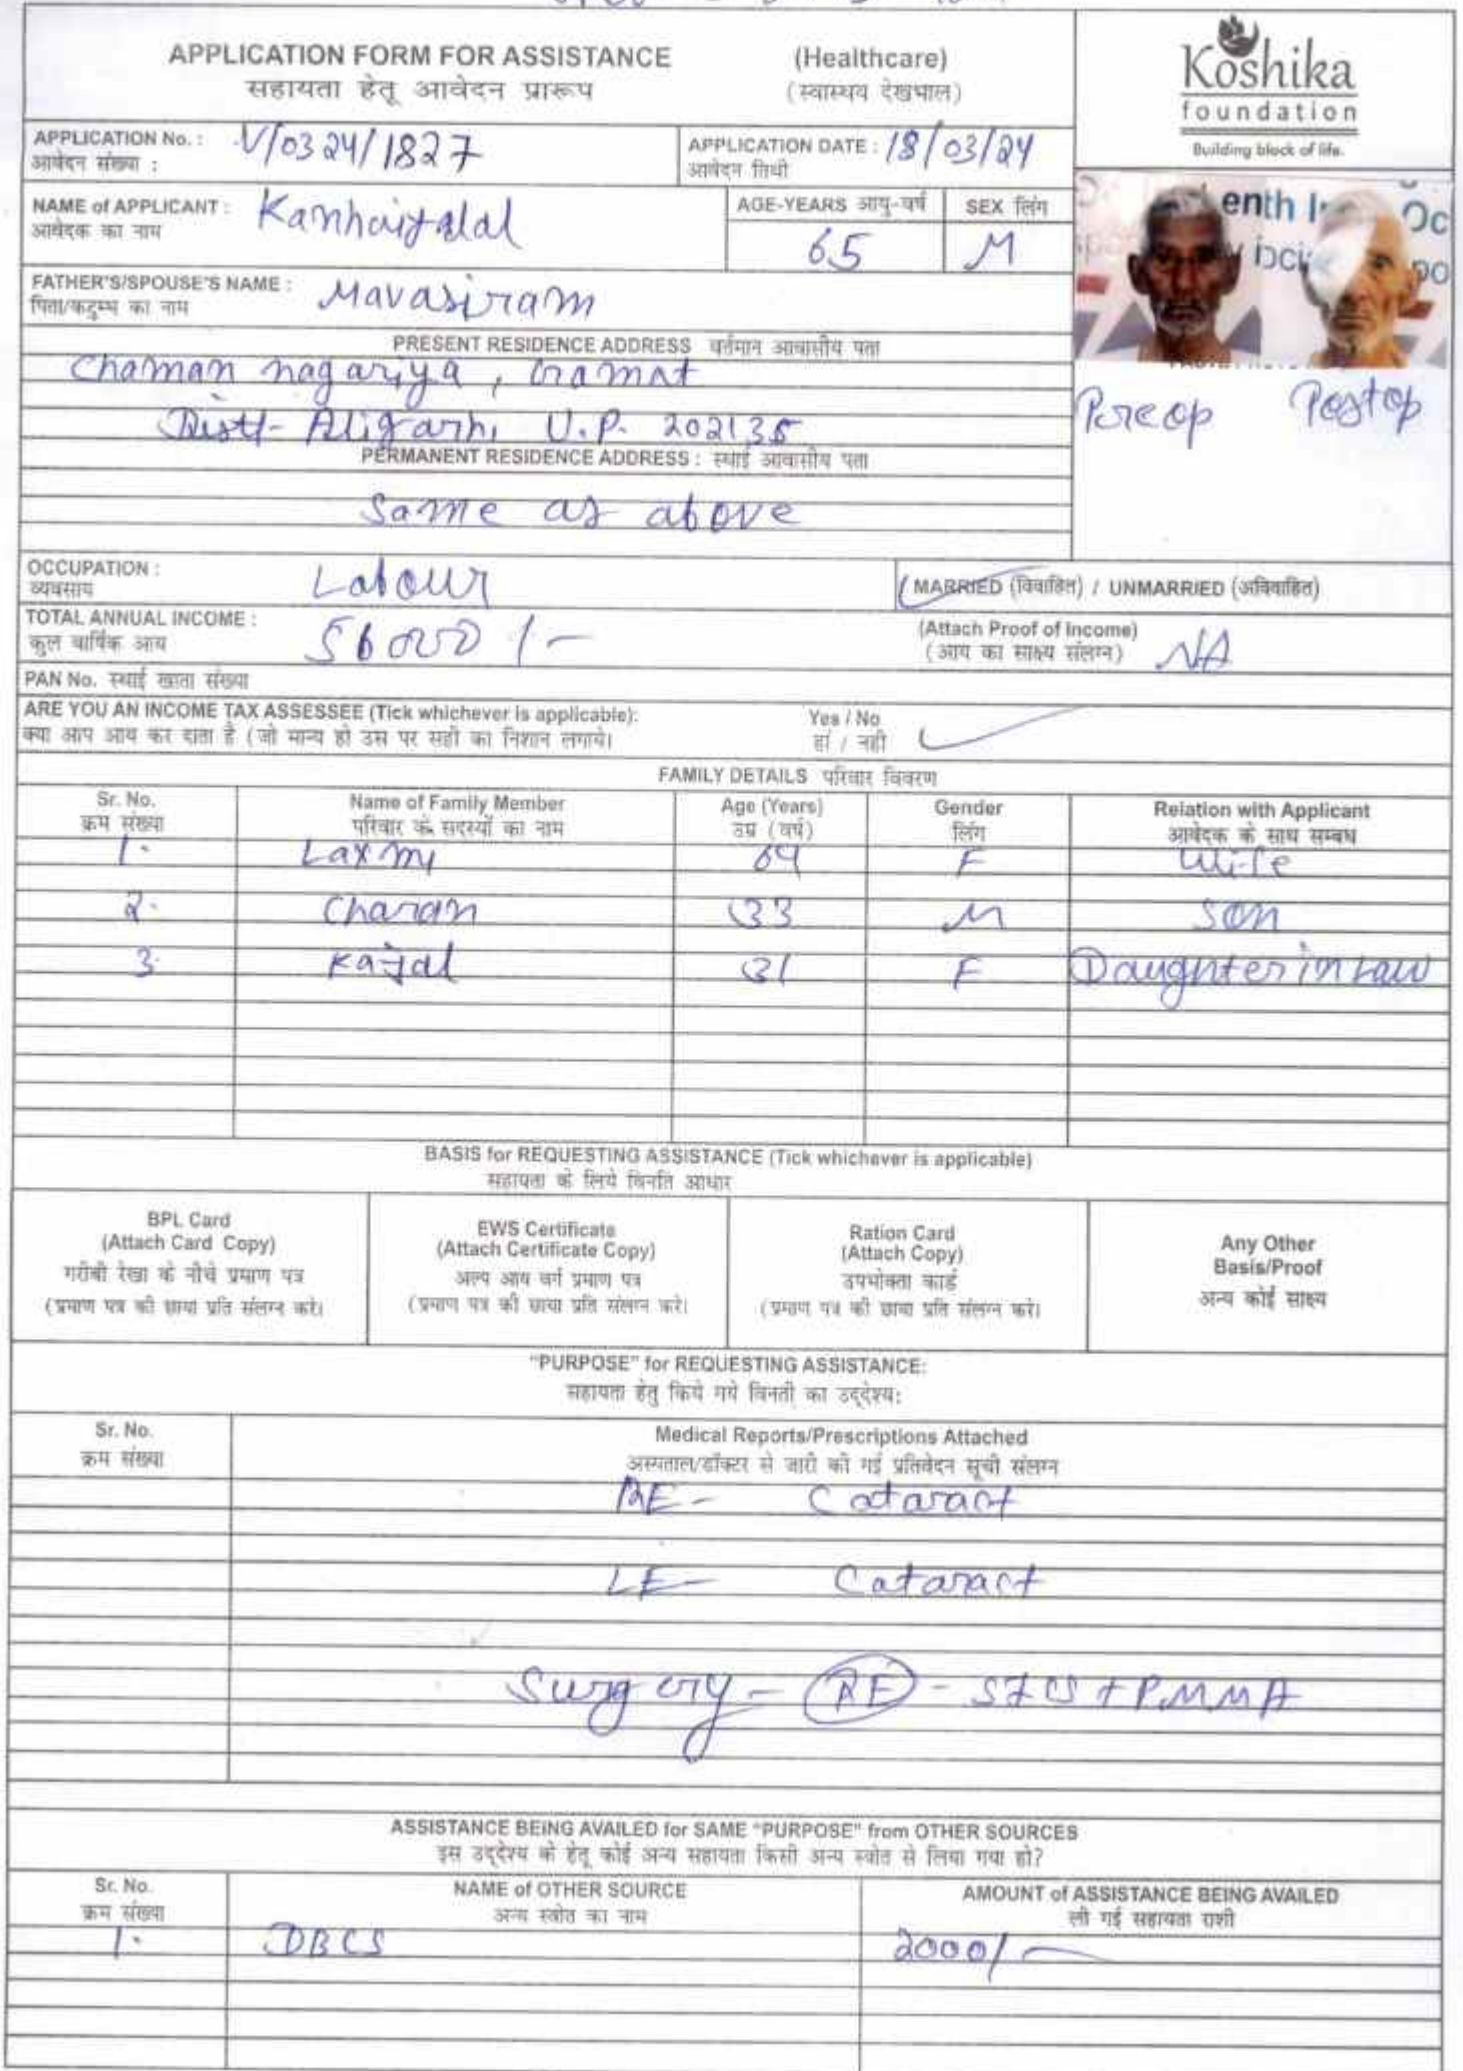 APPLICATION FORM FOR ASSISTANCE (Healthcare)
सहायता हेतू आवेदन प्रारूप (स्वास्थ्य देखभाल)
Koshika
foundation
Building block of life.
APPLICATION No. : V/0324/1827
आवेदन संख्या :
APPLICATION DATE : 18/03/24
आवेदन तिथी
NAME of APPLICANT : Kanhaiyalal
आवेदक का नाम
AGE-YEARS आयु-वर्ष
65
SEX लिंग
M
enth
Preop Postop
FATHER'S/SPOUSE'S NAME : Mavasiram
पिता/कटुम्ब का नाम
PRESENT RESIDENCE ADDRESS वर्तमान आवासीय पता
Chaman nagariya,
Distt- Aligarh, U.P. 202135
PERMANENT RESIDENCE ADDRESS : स्थाई आवासीय पता
Same as above
OCCUPATION : Labour
व्यवसाय
MARRIED (विवाहित) / UNMARRIED (अविवाहित)
TOTAL ANNUAL INCOME : 56000/-
कुल वार्षिक आय
(Attach Proof of Income) NA
(आय का साक्ष्य संलग्न)
PAN No. स्थाई खाता संख्या
ARE YOU AN INCOME TAX ASSESSEE (Tick whichever is applicable): Yes / No
क्या आप आय कर दाता है (जो मान्य हो उस पर सही का निशान लगाये। हां / नही
FAMILY DETAILS परिवार विवरण
Sr. No. Name of Family Member Age (Years) Gender Relation with Applicant
क्रम संख्या परिवार के सदस्यों का नाम उम्र (वर्ष) लिंग आवेदक के साथ सम्बध
1. Laxmi 64 F Wife
2. Charan 33 M Son
3. Kajal 31 F Daughter in Law
BASIS for REQUESTING ASSISTANCE (Tick whichever is applicable)
सहायता के लिये विनति आधार
BPL Card
(Attach Card Copy)
गरीबी रेखा के नीचे प्रमाण पत्र
(प्रमाण पत्र की छाया प्रति संलग्न करे।
EWS Certificate
(Attach Certificate Copy)
अल्प आय वर्ग प्रमाण पत्र
(प्रमाण पत्र की छाया प्रति संलग्न करे।
Ration Card
(Attach Copy)
उपभोक्ता कार्ड
(प्रमाण पत्र की छाया प्रति संलग्न करे।
Any Other
Basis/Proof
अन्य कोई साक्ष्य
"PURPOSE" for REQUESTING ASSISTANCE:
सहायता हेतु किये गये विनती का उद्देश्य:
Sr. No. Medical Reports/Prescriptions Attached
क्रम संख्या अस्पताल/डॉक्टर से जारी की गई प्रतिवेदन सूची संलग्न
RE - Cataract
LE - Cataract
Surgery - RE - SICS + PMMA
ASSISTANCE BEING AVAILED for SAME "PURPOSE" from OTHER SOURCES
इस उद्देश्य के हेतू कोई अन्य सहायता किसी अन्य स्त्रोत से लिया गया हो?
Sr. No. NAME of OTHER SOURCE AMOUNT of ASSISTANCE BEING AVAILED
क्रम संख्या अन्य स्त्रोत का नाम ली गई सहायता राशी
1. DBCS 2000/-